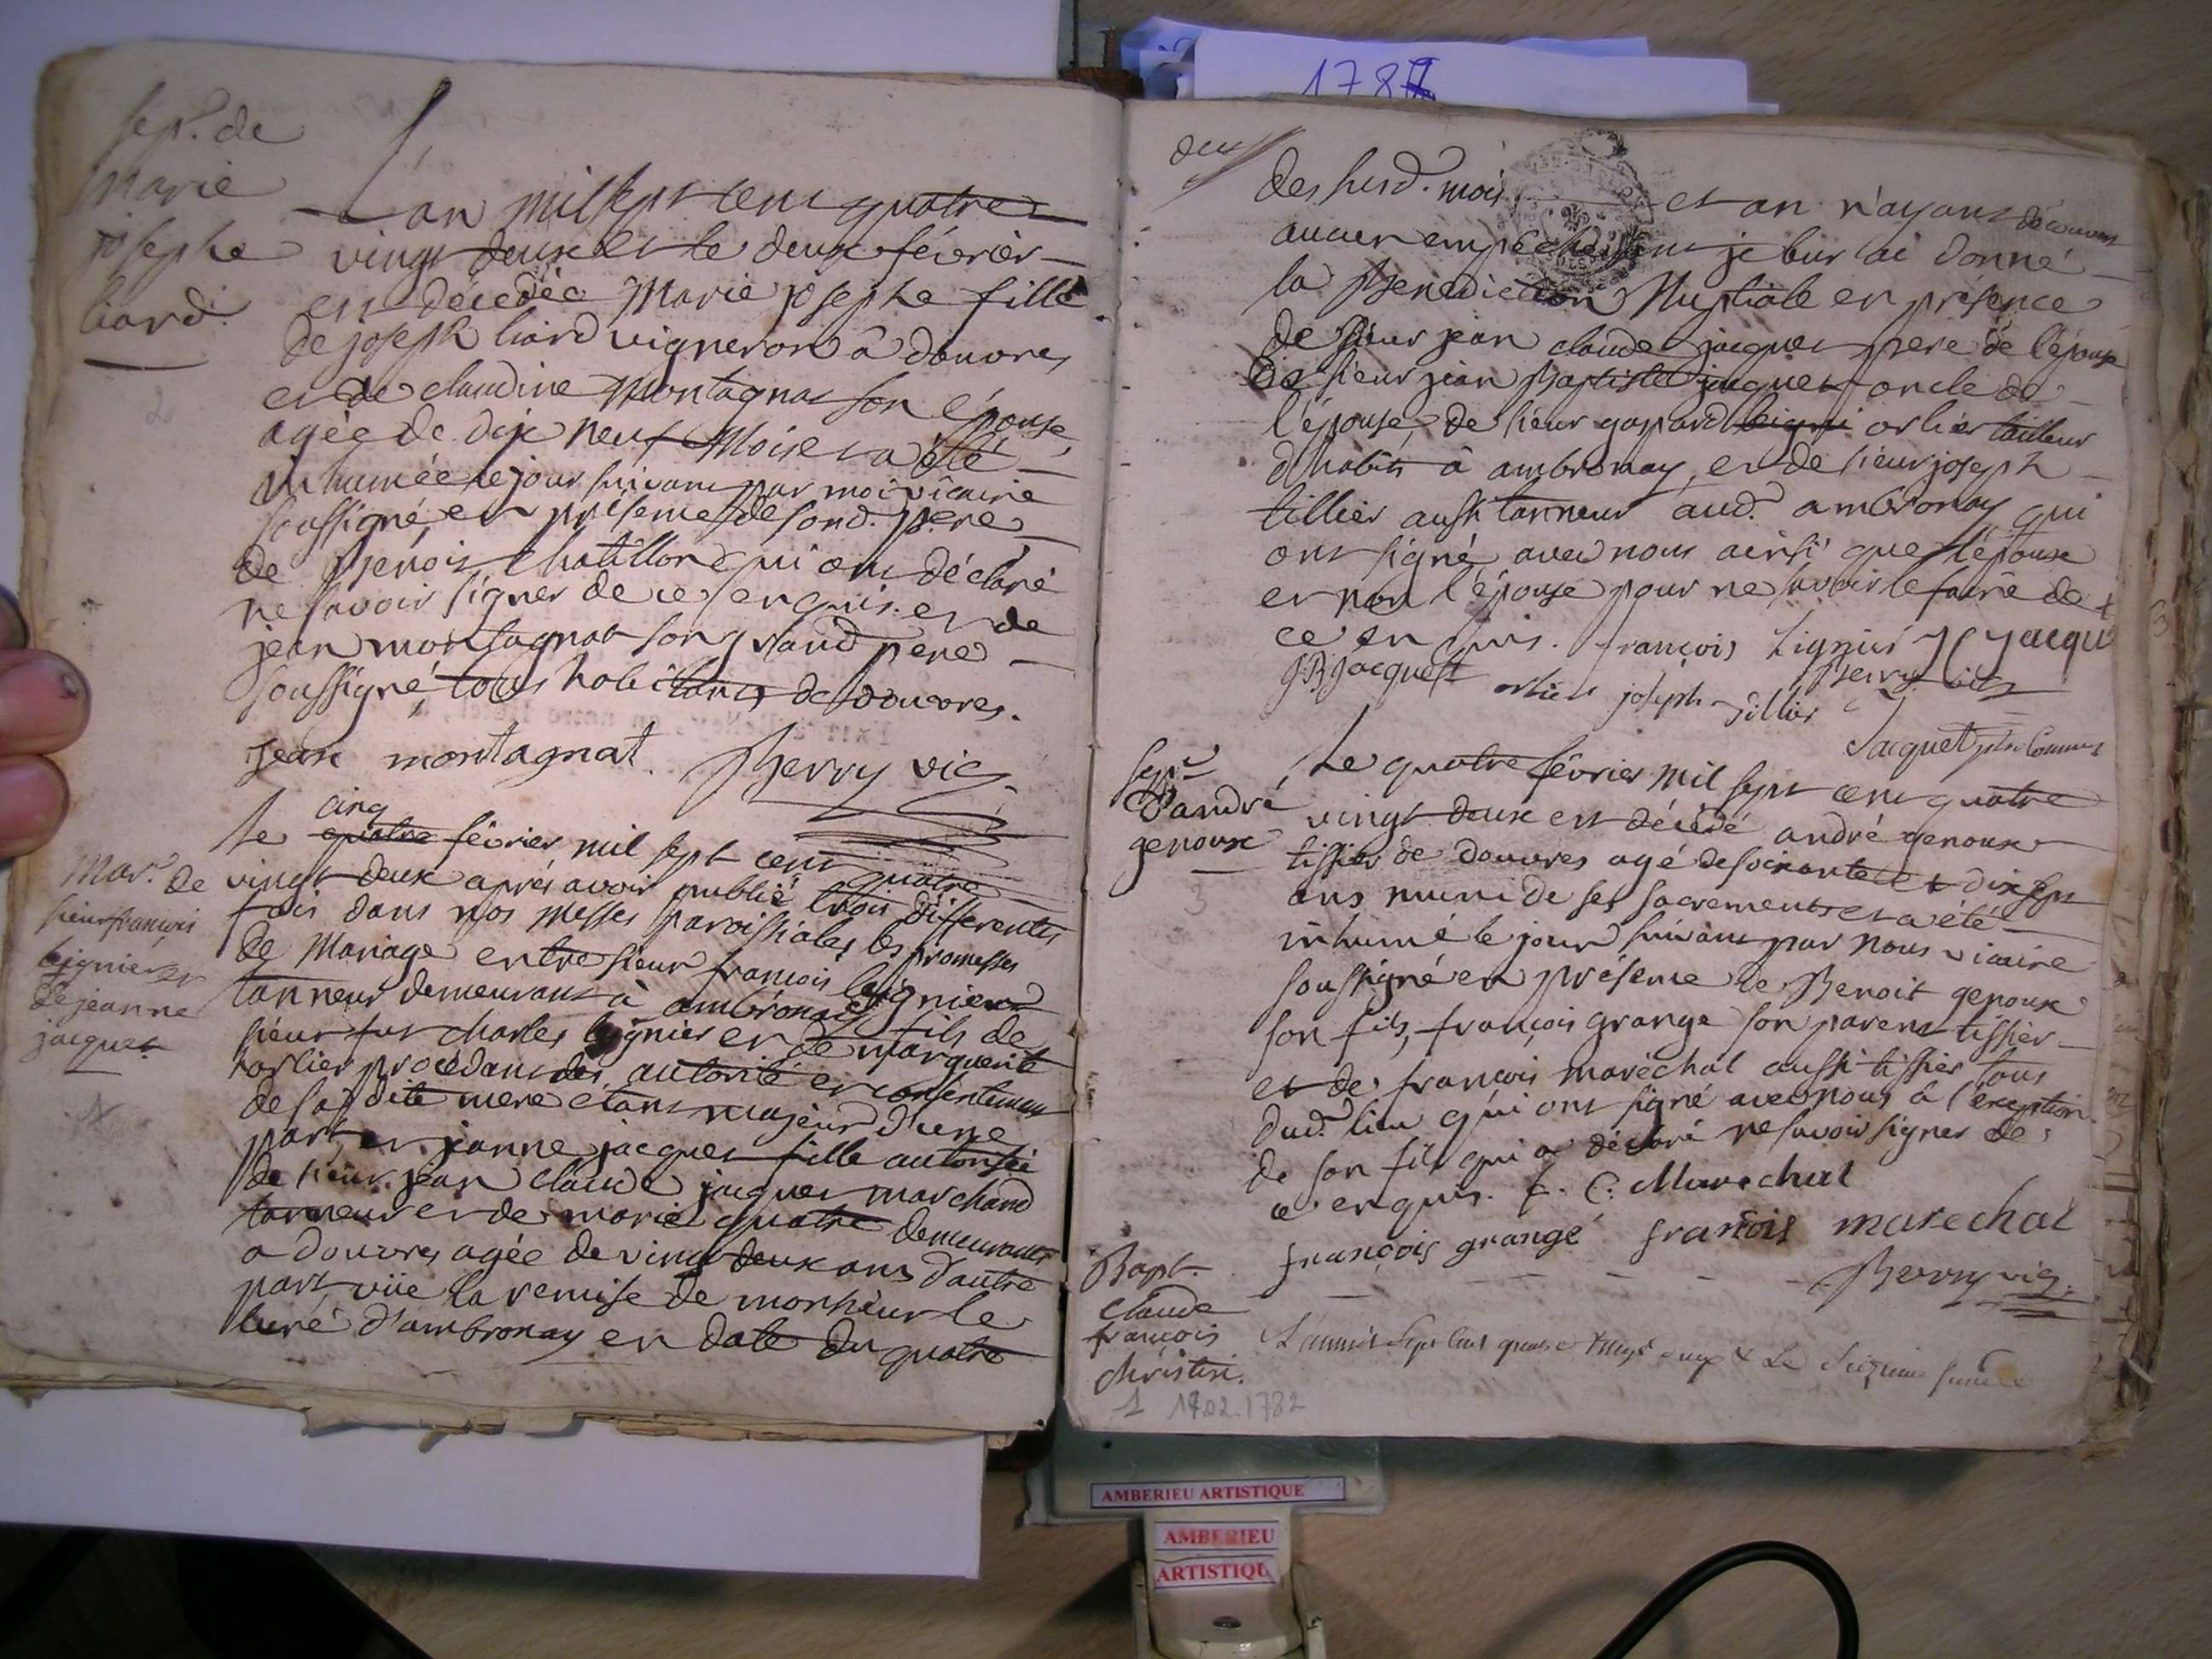 Sep.re de
Marie
josephe
liard.
L'an mil sept cent quatre
vingt deux et le deux février
est décédée Marie josephe fille
de joseph liard vigneron à douvres
et de claudine Montagnat son épouse,
agée de dix neuf Mois et a été
inhumée le jour suivant par moi vicaire
soussigné, en présence de sond. pere
de Benoit Chatillon qui ont déclaré
ne savoir signer de ce enquis. et de
jean montagnat son grand pere
soussigné, tous habitants de douvres.
jean montagnat. Berry vic.
Mar. de
sieur françois
leignier et
de jeanne
jacquet
cinq
Le quatre février mil sept cent quatre
vingt deux après avoir publié trois differentes
fois dans nos Messes paroissiales les promesses
de Mariage entre sieur françois leignier
tanneur demeurant à ambronay fils de
sieur fut charles leignier et de marguerite
orlier procédant des autorité et consentement
de sadite mere étant majeur d'une
part, et jeanne jacquet fille autorisée
de sieur jean claude jacquet marchand
tanneur et de marie quatre demeurants
a douvres agée de vingt deux ans d'autre
part, vüe la remise de monsieur le
curé d'ambronay en date du quatre
1787
deux
des susd. mois et an n'ayant découvert
aucun empéchement je leur ai donné
la Benediction Nuptiale en présence
de sieur jean claude jacquet pere de l'épouse
de sieur jean Baptiste jacquet oncle de
l'épouse, de sieur gaspard leigni orlier tailleur
d'habits à ambronay, et de sieur joseph
tillier aussi tanneur aud. ambronay qui
ont signé avec nous ainsi que l'époux
et non l'épouse pour ne savoir le faire de
ce enquis. françois Lignier J C jacque
J.B. jacquet orlier joseph Tillier Berry vic.
Jacquet
Sep.re
d'andré
genoux
3
Le quatre février mil sept cent quatre
vingt deux est décédé andré genoux
tissier de douvres agé de soixante et dix sept
ans muni de ses sacrements et a été
inhumé le jour suivant par nous vicaire
soussigné en présence de Benoit genoux
son fils, françois grange son parent tissier
et de françois maréchal aussi tissier tous
dud. lieu qui ont signé avec nous à l'exception
de son fils qui a déclaré ne savoir signer de
ce enquis. f. C. Marechal
françois grangé françois marechal
Berry vic.
Bapt.
claude
françois
christin.
1 14.02.1782
L'an mil sept cent quatre vingt deux & Le
AMBERIEU ARTISTIQUE
AMBERIEU
ARTISTIQU